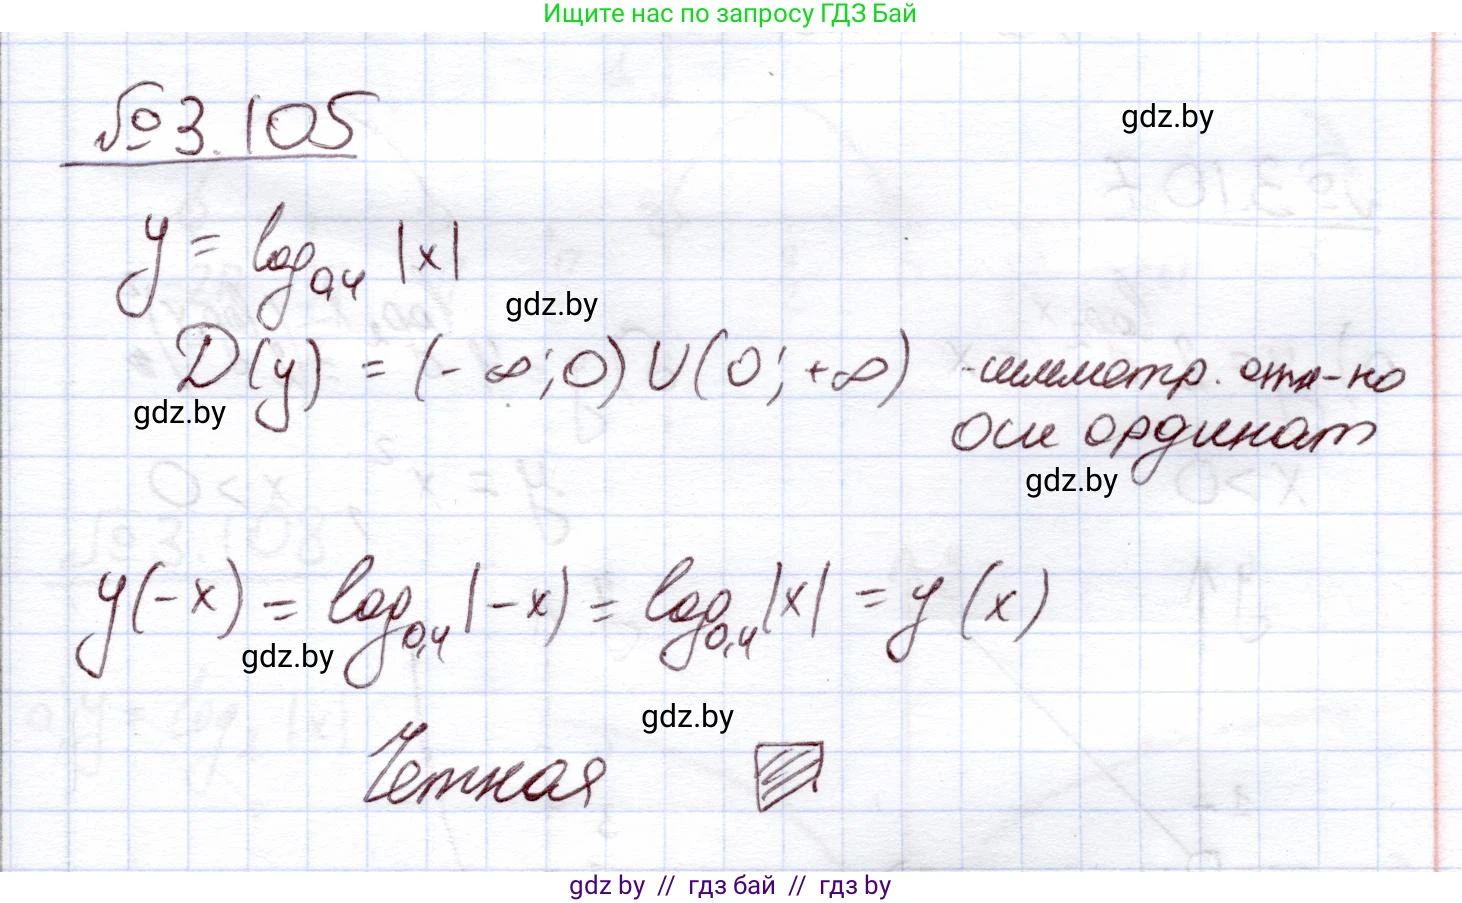 Ищите нас по запросу ГДЗ Бай
№3.105
gdz.by
y = log₀,₄ |x|
gdz.by
D(y) = (-∞; 0) ∪ (0; +∞) - симметр. отн-но
gdz.by
оси ординат
gdz.by
y(-x) = log₀,₄ |-x| = log₀,₄ |x| = y(x)
gdz.by
gdz.by
Четная
gdz by // гдз бай // гдз by